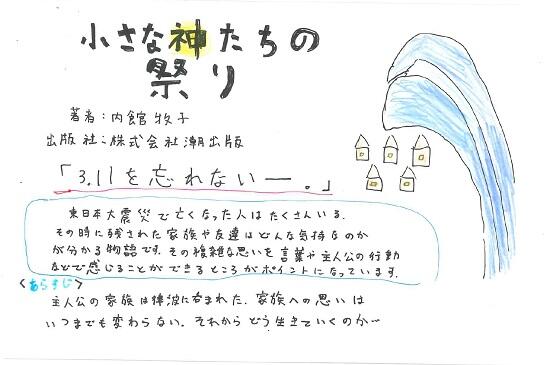 小さな神たちの
祭り
著者：内館牧子
出版社：株式会社潮出版
「3.11を忘れないー。」
東日本大震災で亡くなった人はたくさんいる。
その時に残された家族や友達はどんな気持なのか
が分かる物語です。その複雑な思いを言葉や主人公の行動
などで感じることができるところがポイントになっています。
＜あらすじ＞
主人公の家族は津波に呑まれた。家族への思いは
いつまでも変わらない。それからどう生きていくのか…